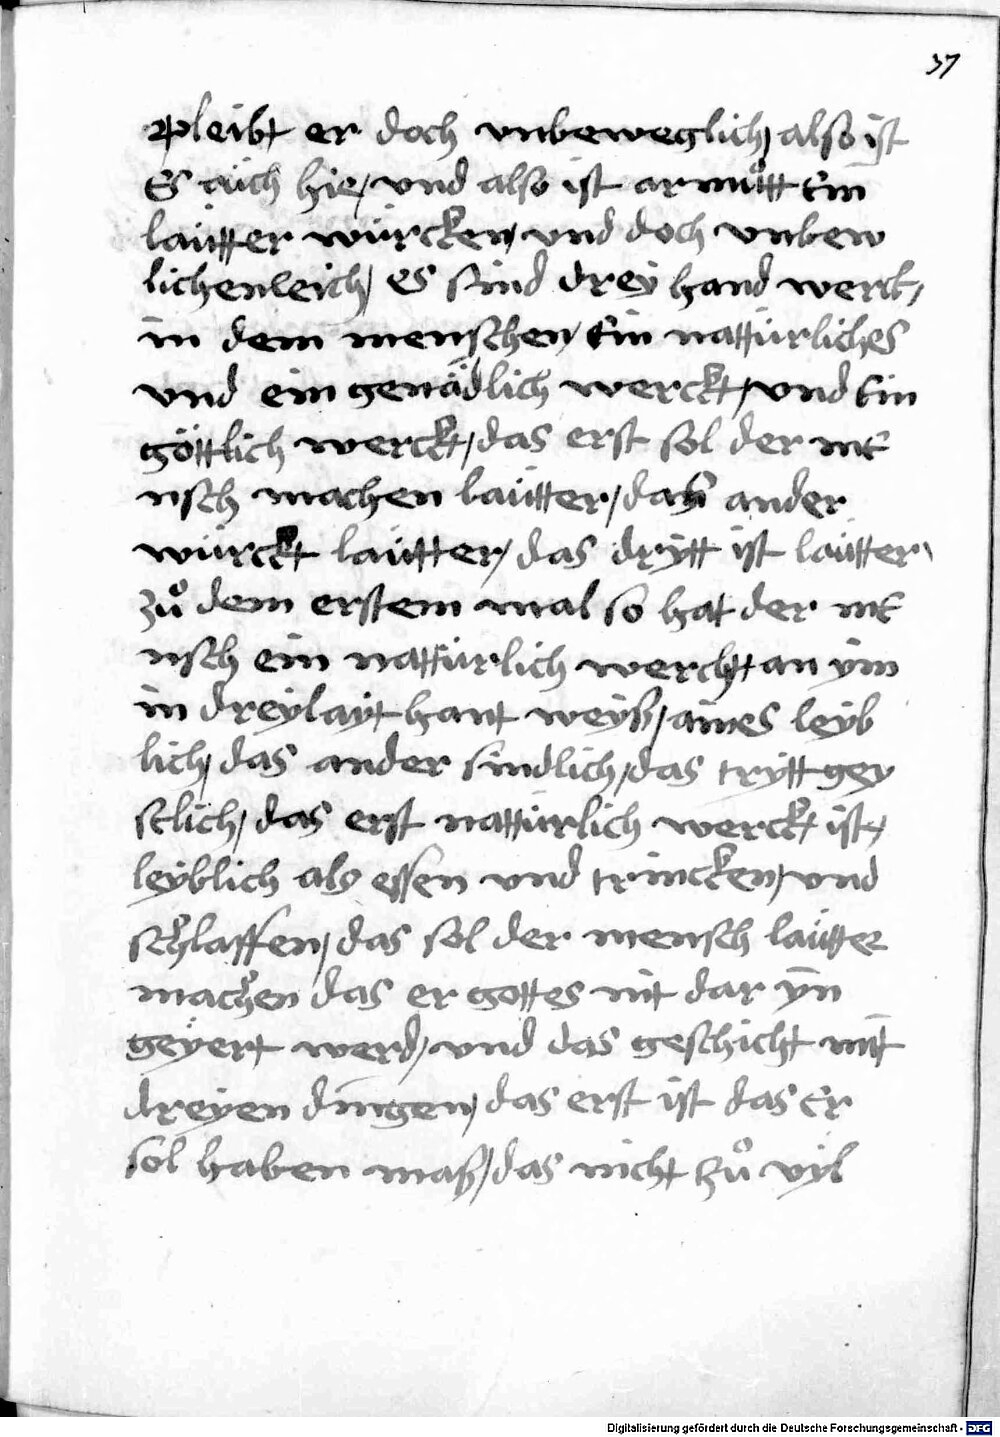 37
pleibt er doch vnbeweglich, also ist
Es aüch hie, vnd also ist armuͦtt Ein
laütter würcken, vnd doch vnbew
lichenleich, es sind drey hand werk,
in dem menschen, Ein nattürliches
vnd ein genädlich werckt, vnd Ein
göttlich werckt, das erst sol der mE
nsch machen laütter, das ander
würckt laütter, das drytt ist laütter,
zuͦ dem erstem mal so hat der mE
nsch ein nattürlich werchtt an ym
in dreylayt hant weyß, aines leyb
lich, das ander sindlich, das trytt gey
stlich, das erst nattürlich werckt ist,
leyblich als essen vnd trincken, vnd
schlaffen, das sol der mensch laütter
machen das er gottes nit dar yn̄
geyert werd, vnd das geschicht mitt
dreyen dingen, das erst ist das Er
sol haben maß, das nicht zuͦ vyl
Digitalisierung gefördert durch die Deutsche Forschungsgemeinschaft - DFG